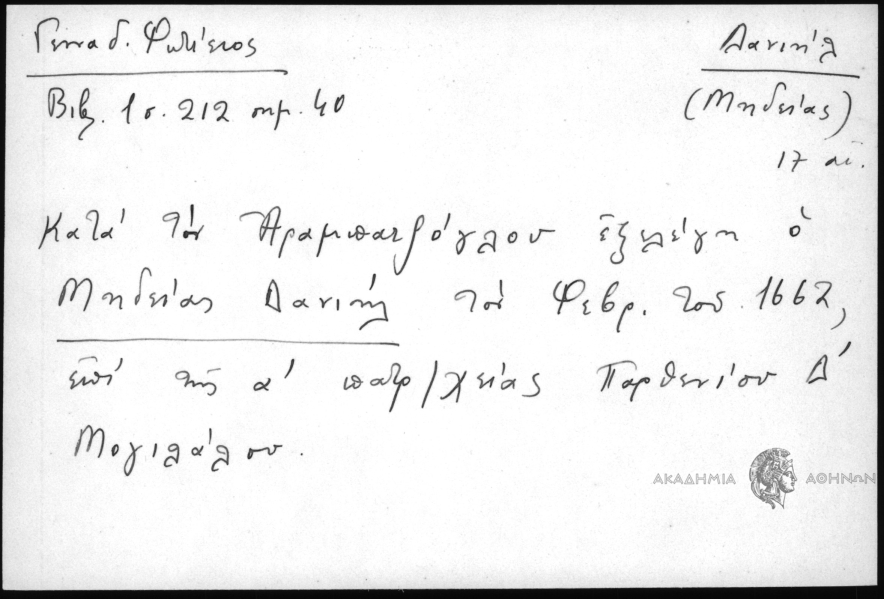 Γενναδ. Φωτίειος
Δανιήλ
Βιβ. 1 σ. 212 σημ. 40
(Μηδείας)
17 αἰ.
Κατά τόν Ἀραμπατζόγλου ἐξελέγη ὁ
Μηδείας Δανιήλ τόν Φεβρ. τοῦ 1662,
ἐπί τῆς α' πατρ/χείας Παρθενίου Δ'
Μογιλάλου.
ΑΚΑΔΗΜΙΑ ΑΘΗΝΩΝ